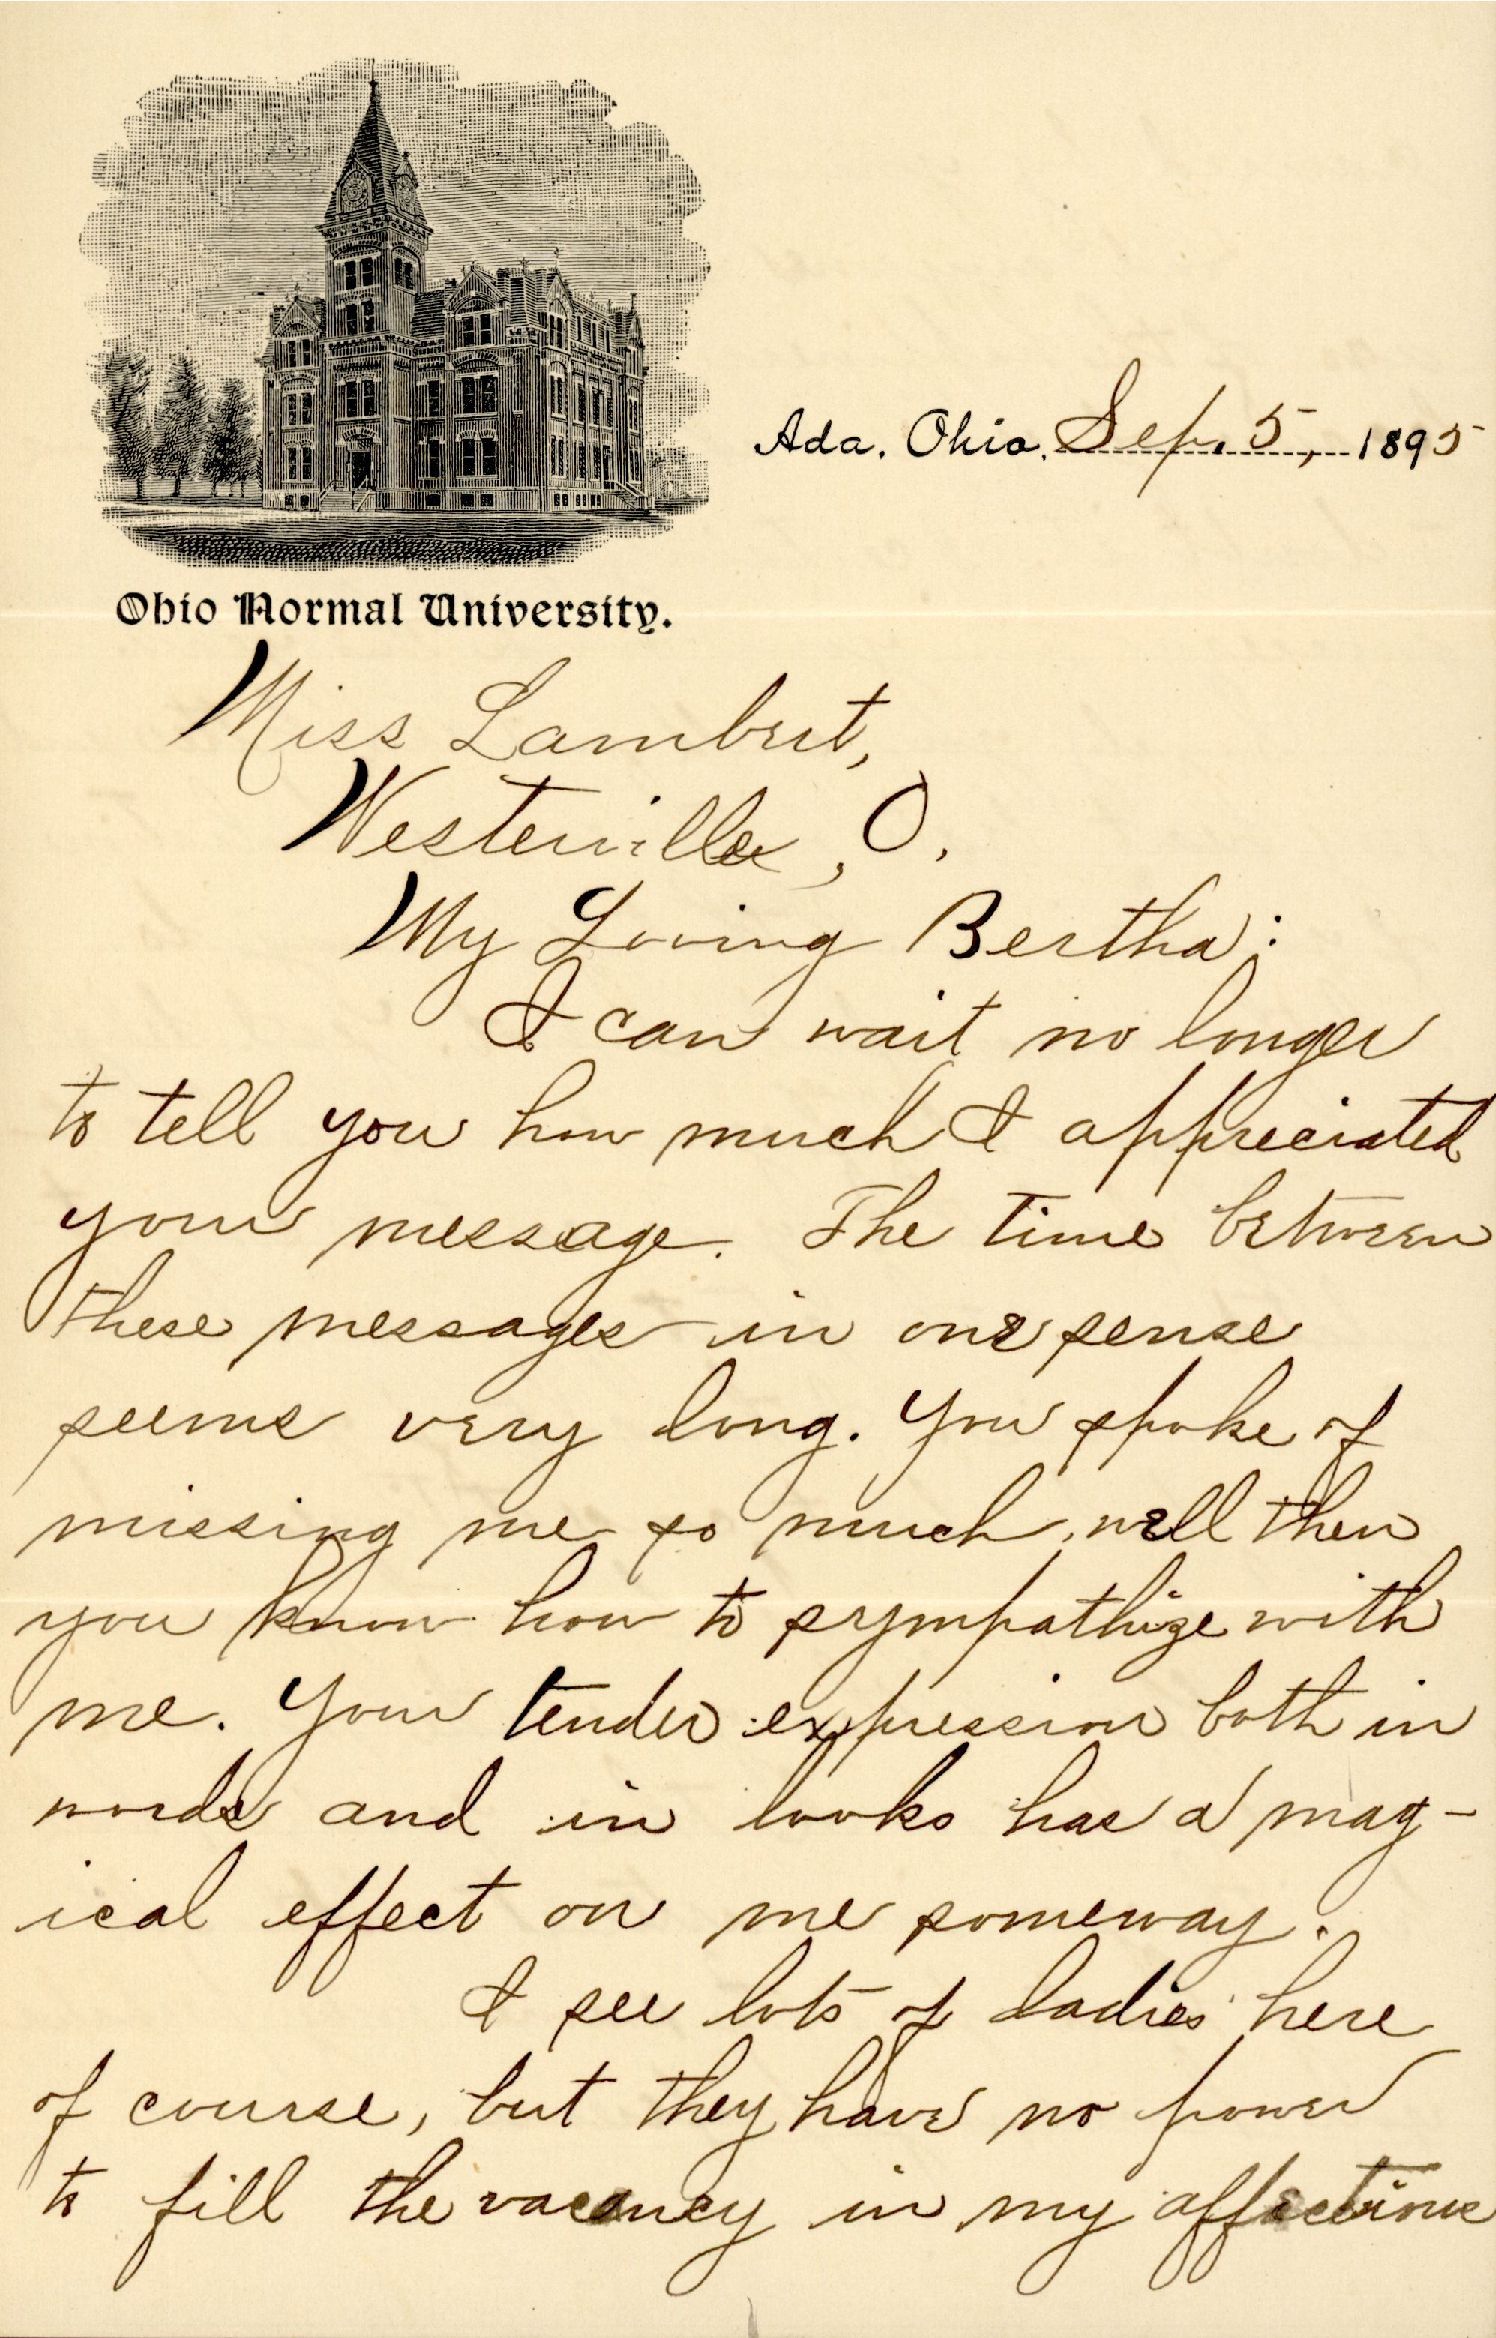 Ada, Ohio, Sep. 5, 1895
Ohio Normal University.
Miss Lambert,
Westerville, O.
My Loving Bertha:
I can wait no longer
to tell you how much I appreciated
your message. The time between
these messages in one sense
seems very long. You spoke of
missing me so much, well then
you know how to sympathize with
me. Your tender expression both in
words and in looks has a mag-
ical effect on me someway.
I see lots of ladies here
of course, but they have no power
to fill the vacancy in my affections